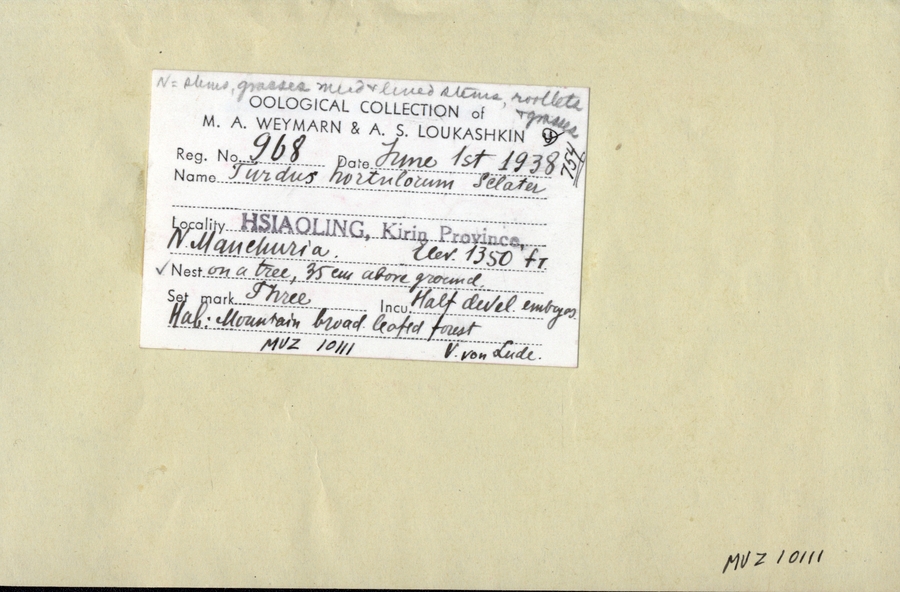 N= stems, grasses mud & lined stems, rootlets
& grasses
OOLOGICAL COLLECTION of
M. A. WEYMARN & A. S. LOUKASHKIN
Reg. No. 968 Date June 1st 1938
754
Name Turdus hortulorum Sclater
Locality HSIAOLING, Kirin Province,
N. Manchuria. Elev. 1350 ft
✓ Nest on a tree, 35 cm above ground.
Set mark Three Incu. Half devel. embryos.
Hab: Mountain broad leafed forest
MVZ 10111 V. von Lude.
MVZ 10111